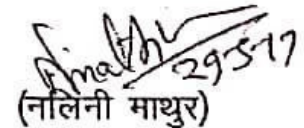 29-5-17
(नलिनी माथुर)